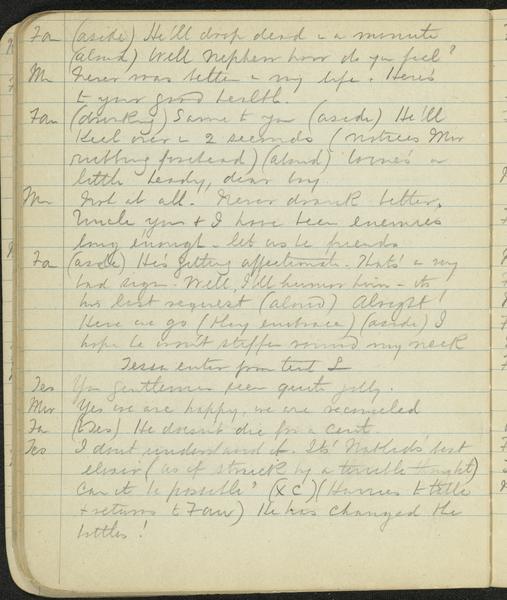 Fan (aside) He'll drop dead in a minute
(aloud) Well Nephew how do you feel?
Mir Never was better in my life. Here's
to your good health.
Fan (drinking) Same to you (aside) He'll
keel over in 2 seconds (notices Mir
rubbing forehead) (aloud) Wine's a
little heady, dear boy
Mir Not at all. Never drank better,
Uncle you & I have been enemies
long enough - let us be friends
Fan (aside) He's getting affectionate. That's a very
bad sign. Well, I'll humor him - its
his last request (aloud) Alright!
Here we go (they embrace) (aside) I
hope he won't stiffen round my neck
Tessa enter from tent L
Tes You gentlemen seem quite jolly.
Mir Yes we are happy, we are reconciled
Fa (to Tes) He doesn't die for a cent.
Tes I don't understand it. Its best
elixir (as if struck by a terrible thought)
Can it be possible? (X C) (Hurries to table
& returns to Fan) He has changed the
bottles!